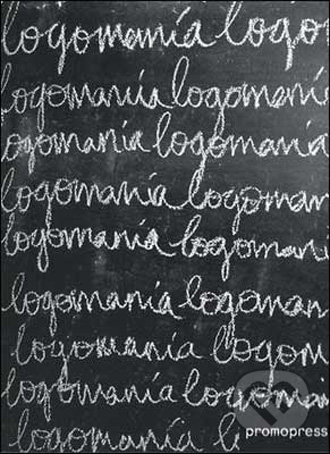 logomanía logo
logomanía logomaní
ogomanía logomanía
logomanía logoman
logomanía logomani
logomanía logoman
logomanía logom
logomanía logoma
logomanía l
promopress